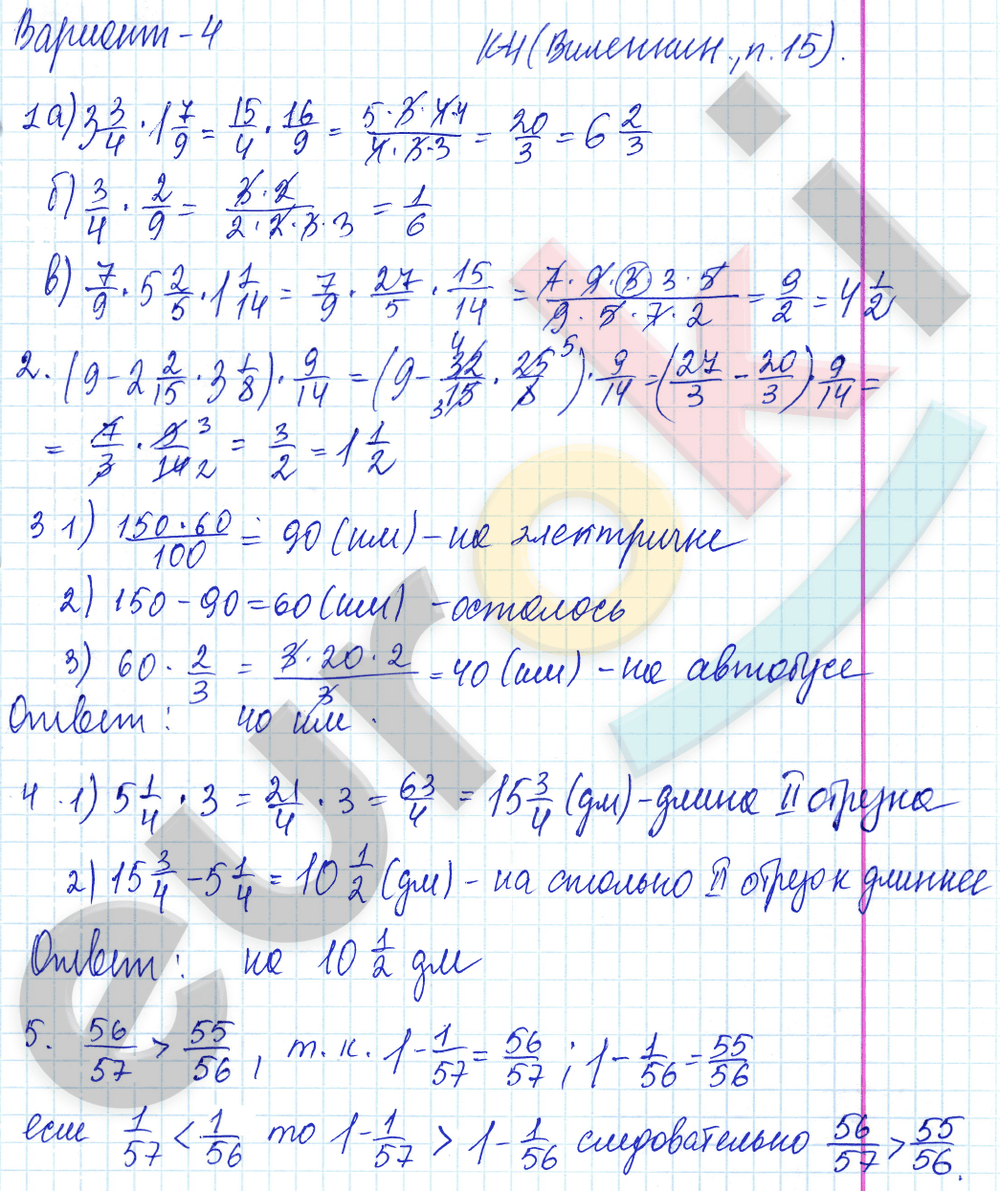 Вариант-4 К-4 (Виленкин., п. 15).
1а) 3 3/4 · 1 7/9 = 15/4 · 16/9 = 5·3·4·4/4·3·3 = 20/3 = 6 2/3
б) 3/4 · 2/9 = 3·2/2·2·3·3 = 1/6
в) 7/9 · 5 2/5 · 1 1/14 = 7/9 · 27/5 · 15/14 = 7·9·3·3·5/9·5·7·2 = 9/2 = 4 1/2
2. (9 - 2 2/15 · 3 1/8) · 9/14 = (9 - 32 4/15 3 · 25 5/8) · 9/14 = (27/3 - 20/3) · 9/14 =
= 7/3 · 9 3/14 2 = 3/2 = 1 1/2
3 1) 150·60/100 = 90 (км) - на электричке
2) 150 - 90 = 60 (км) - осталось
3) 60 · 2/3 = 3·20·2/3 = 40 (км) - на автобусе
Ответ: 40 км.
4. 1) 5 1/4 · 3 = 21/4 · 3 = 63/4 = 15 3/4 (дм) - длина II отрезка
2) 15 3/4 - 5 1/4 = 10 1/2 (дм) - на столько II отрезок длиннее
Ответ: на 10 1/2 дм
5. 56/57 > 55/56, т.к. 1 - 1/57 = 56/57; 1 - 1/56 = 55/56
если 1/57 < 1/56 то 1 - 1/57 > 1 - 1/56 следовательно 56/57 > 55/56.
euroki